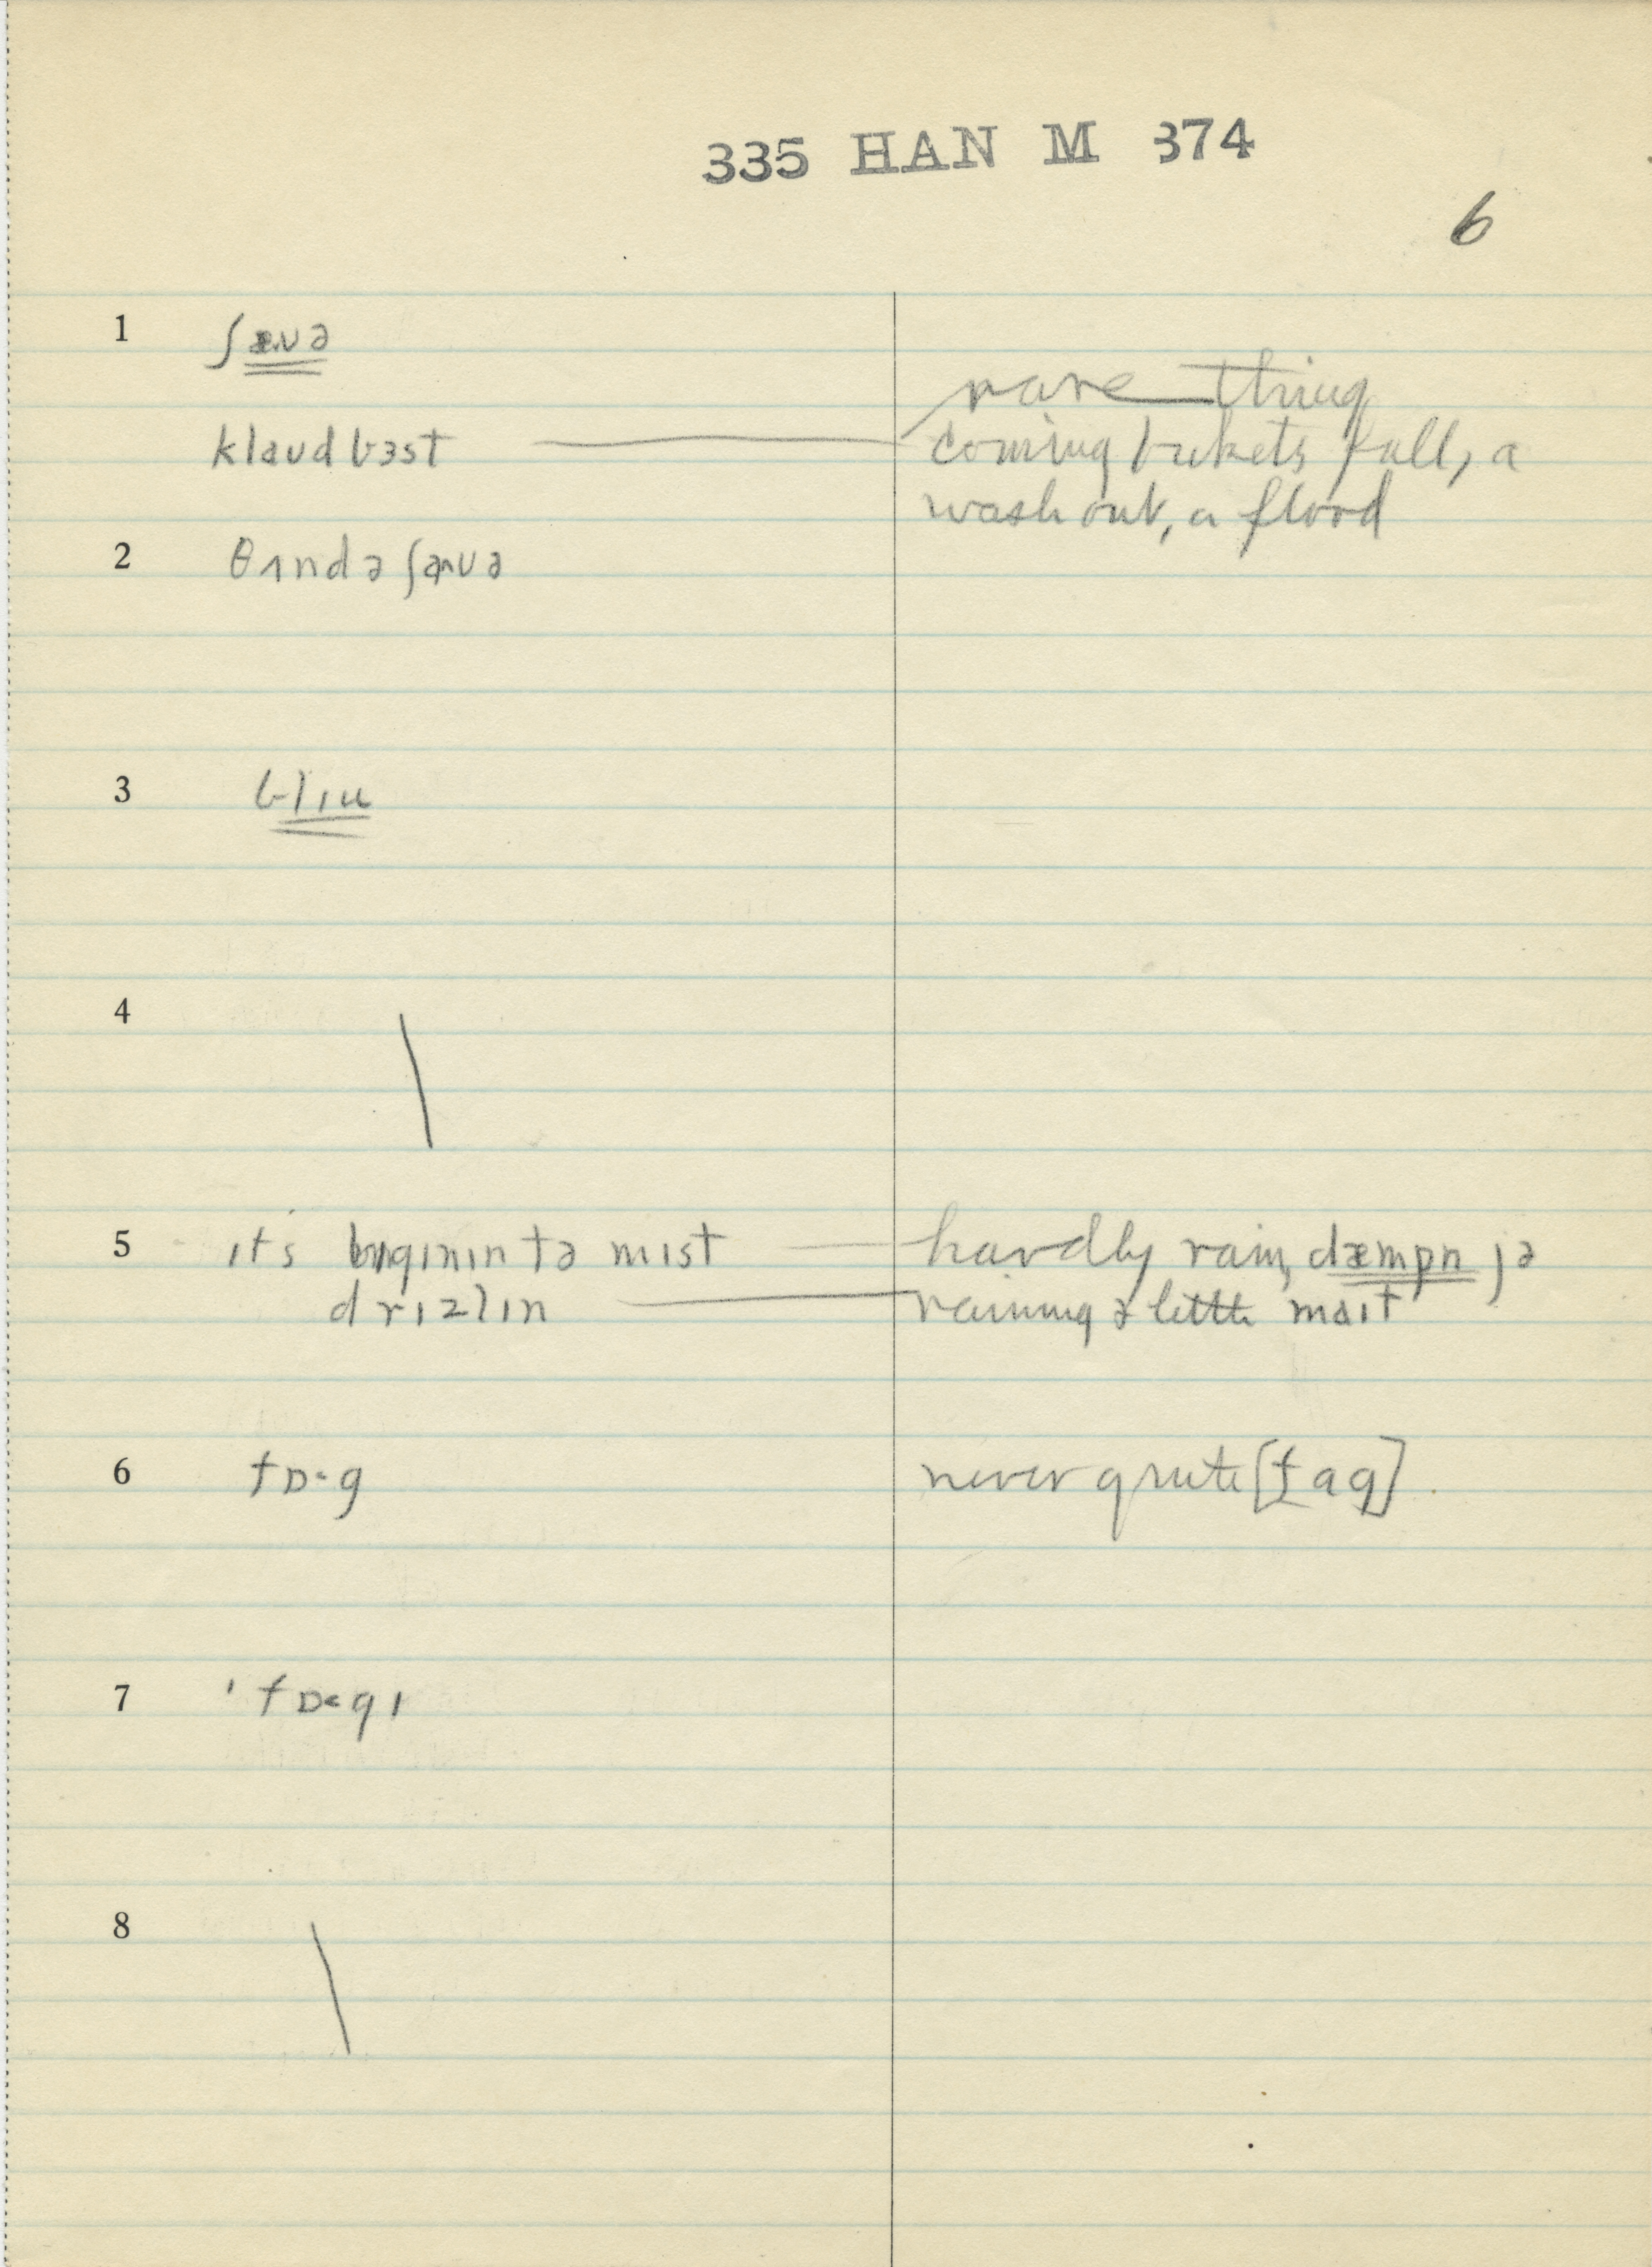 335 HAN M 374
6
1 ʃæʊə
rare thing
klaudbɜst coming buckets full, a
wash out, a flood
2 θʌndə ʃæʊə
3 blɪu
4
5 ɪts bɪgɪnɪn tə mɪst hardly rain, dæmpn ɟə
drɪzlɪn raining ə little maɪt
6 fɒ·g never quite [fag]
7 'fɒ·gɪ
8